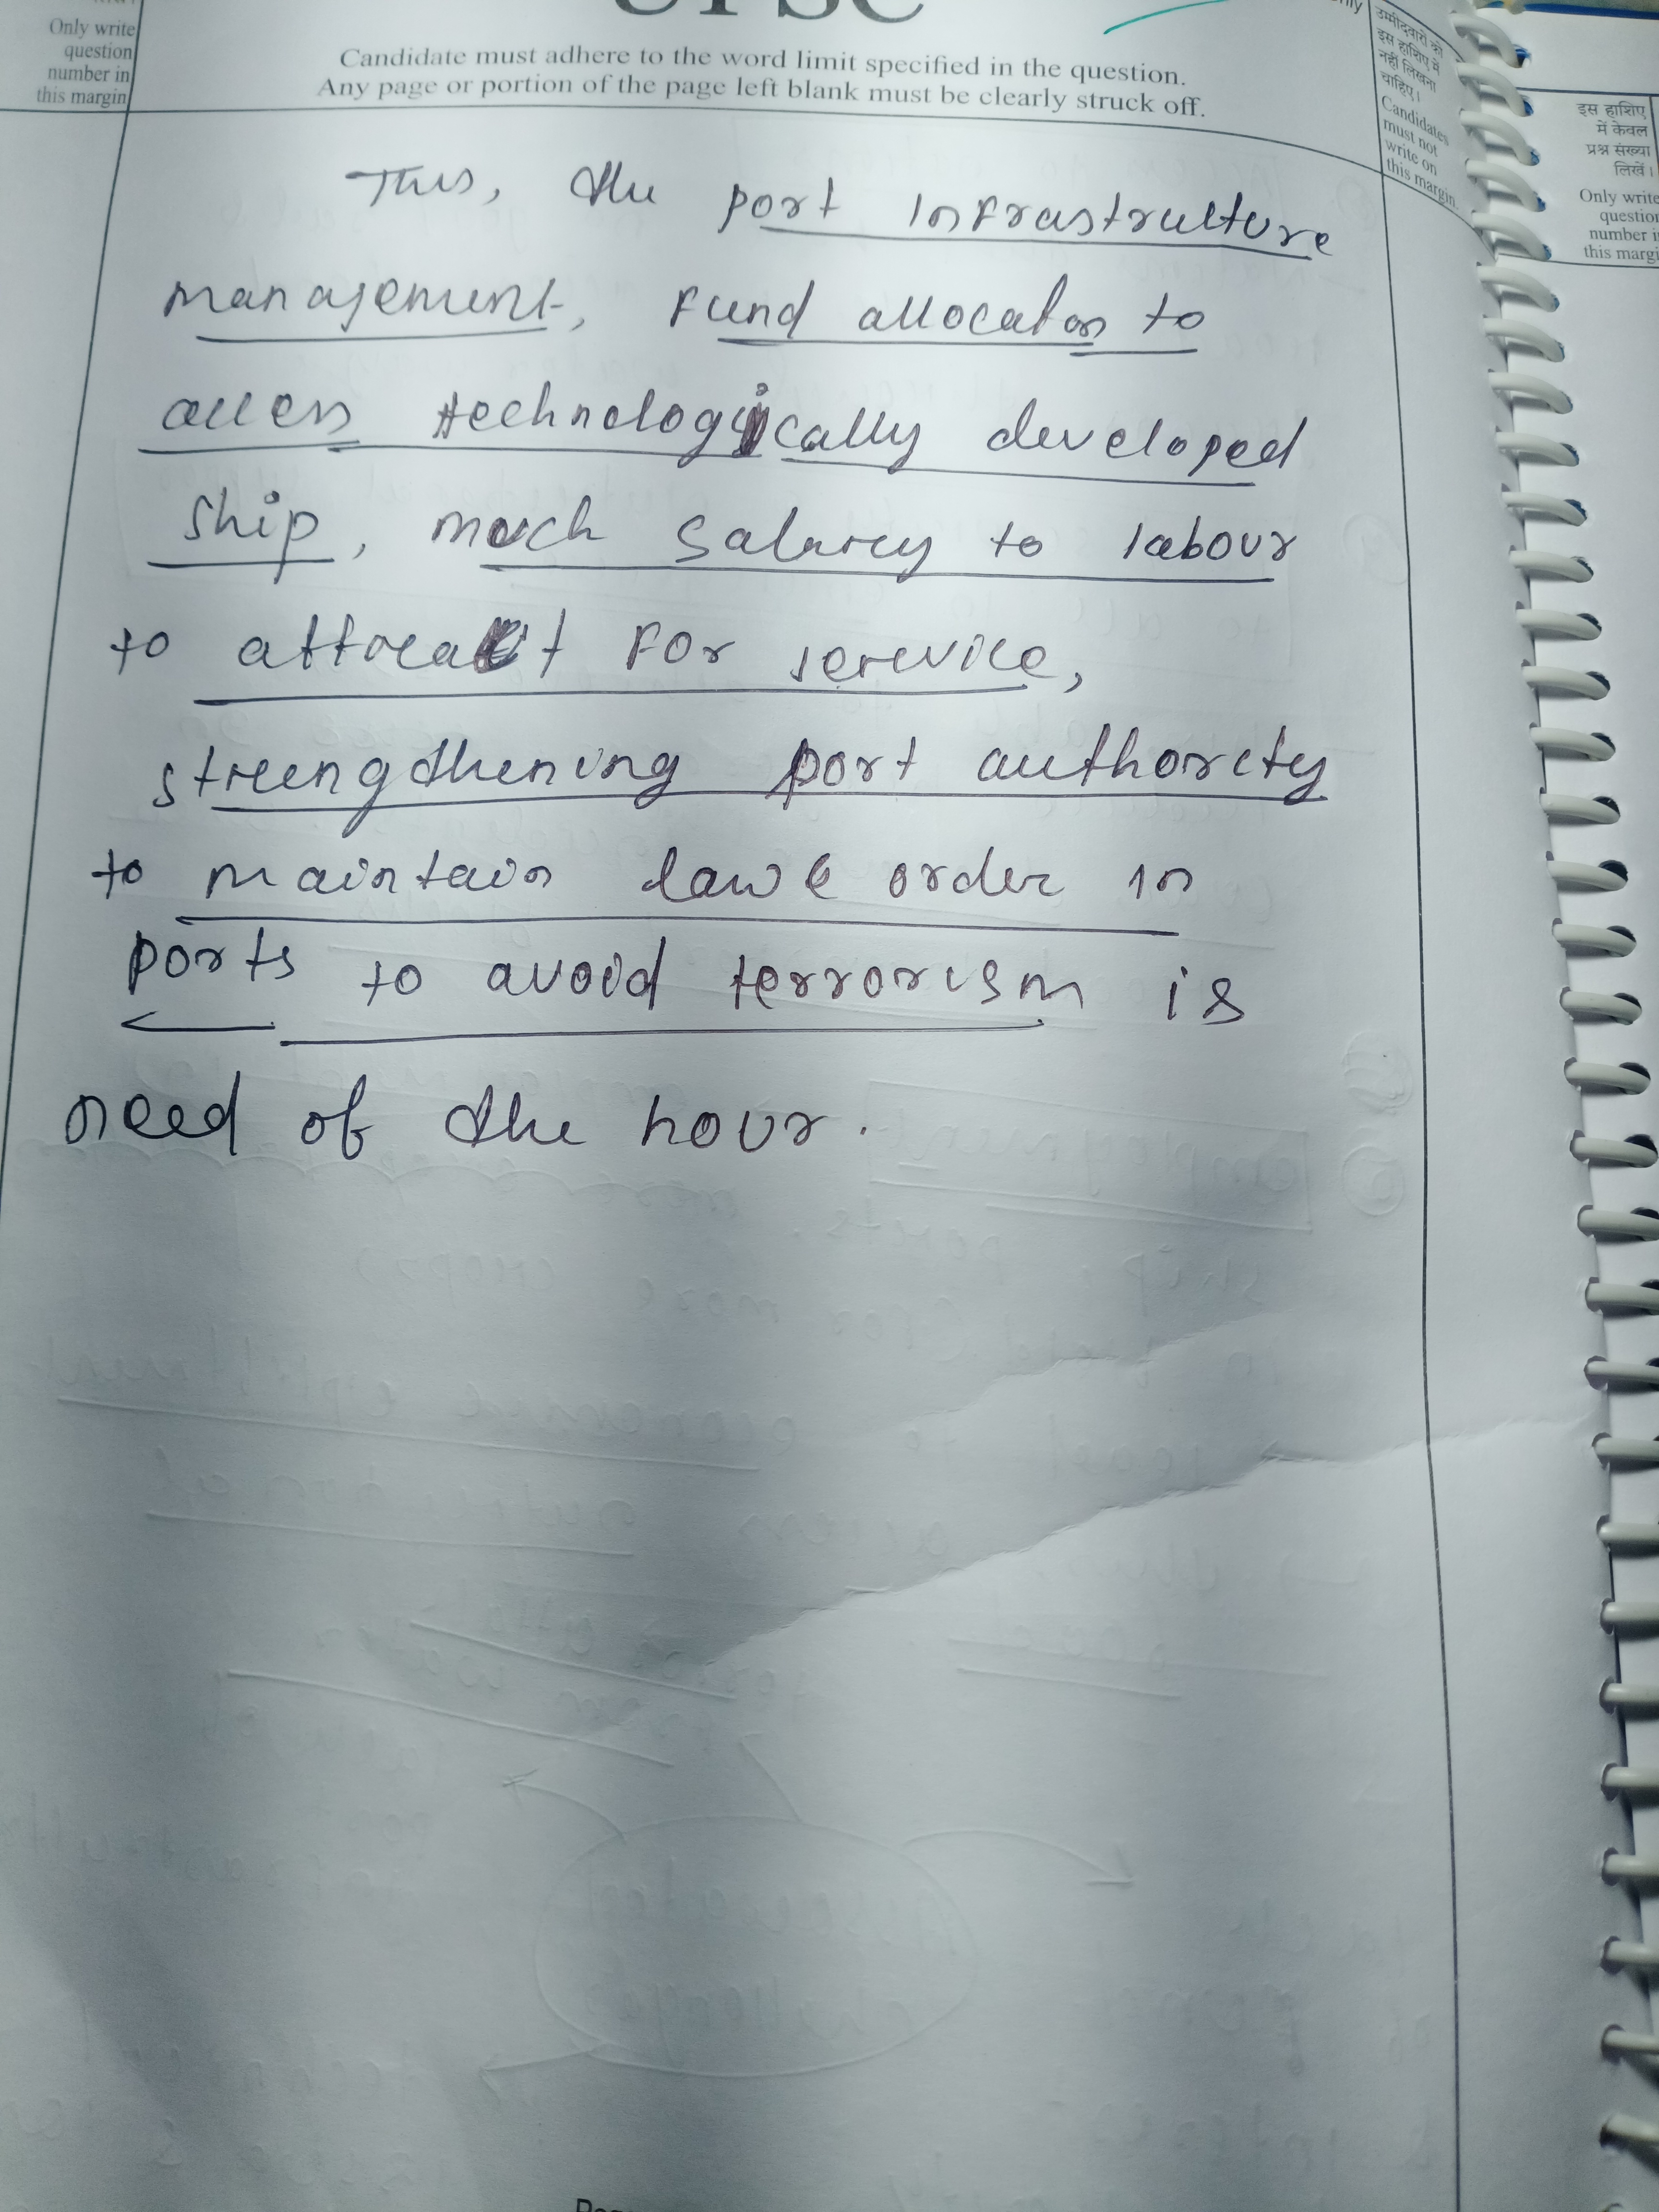 UPSC
Only write
question
number in
this margin
Candidate must adhere to the word limit specified in the question.
Any page or portion of the page left blank must be clearly struck off.
उम्मीदवारों को
इस हाशिए में
नहीं लिखना
चाहिए।
Candidates
must not
write on
this margin.
इस हाशिए
में केवल
प्रश्न संख्या
लिखें।
Only write
question
number in
this margin
Thus, the port infrastructure
management, Fund allocation to
access technologically developed
ship, much salary to labour
to attract for service,
strengthening port authority
to maintain law & order in
ports to avoid terrorism is
need of the hour.